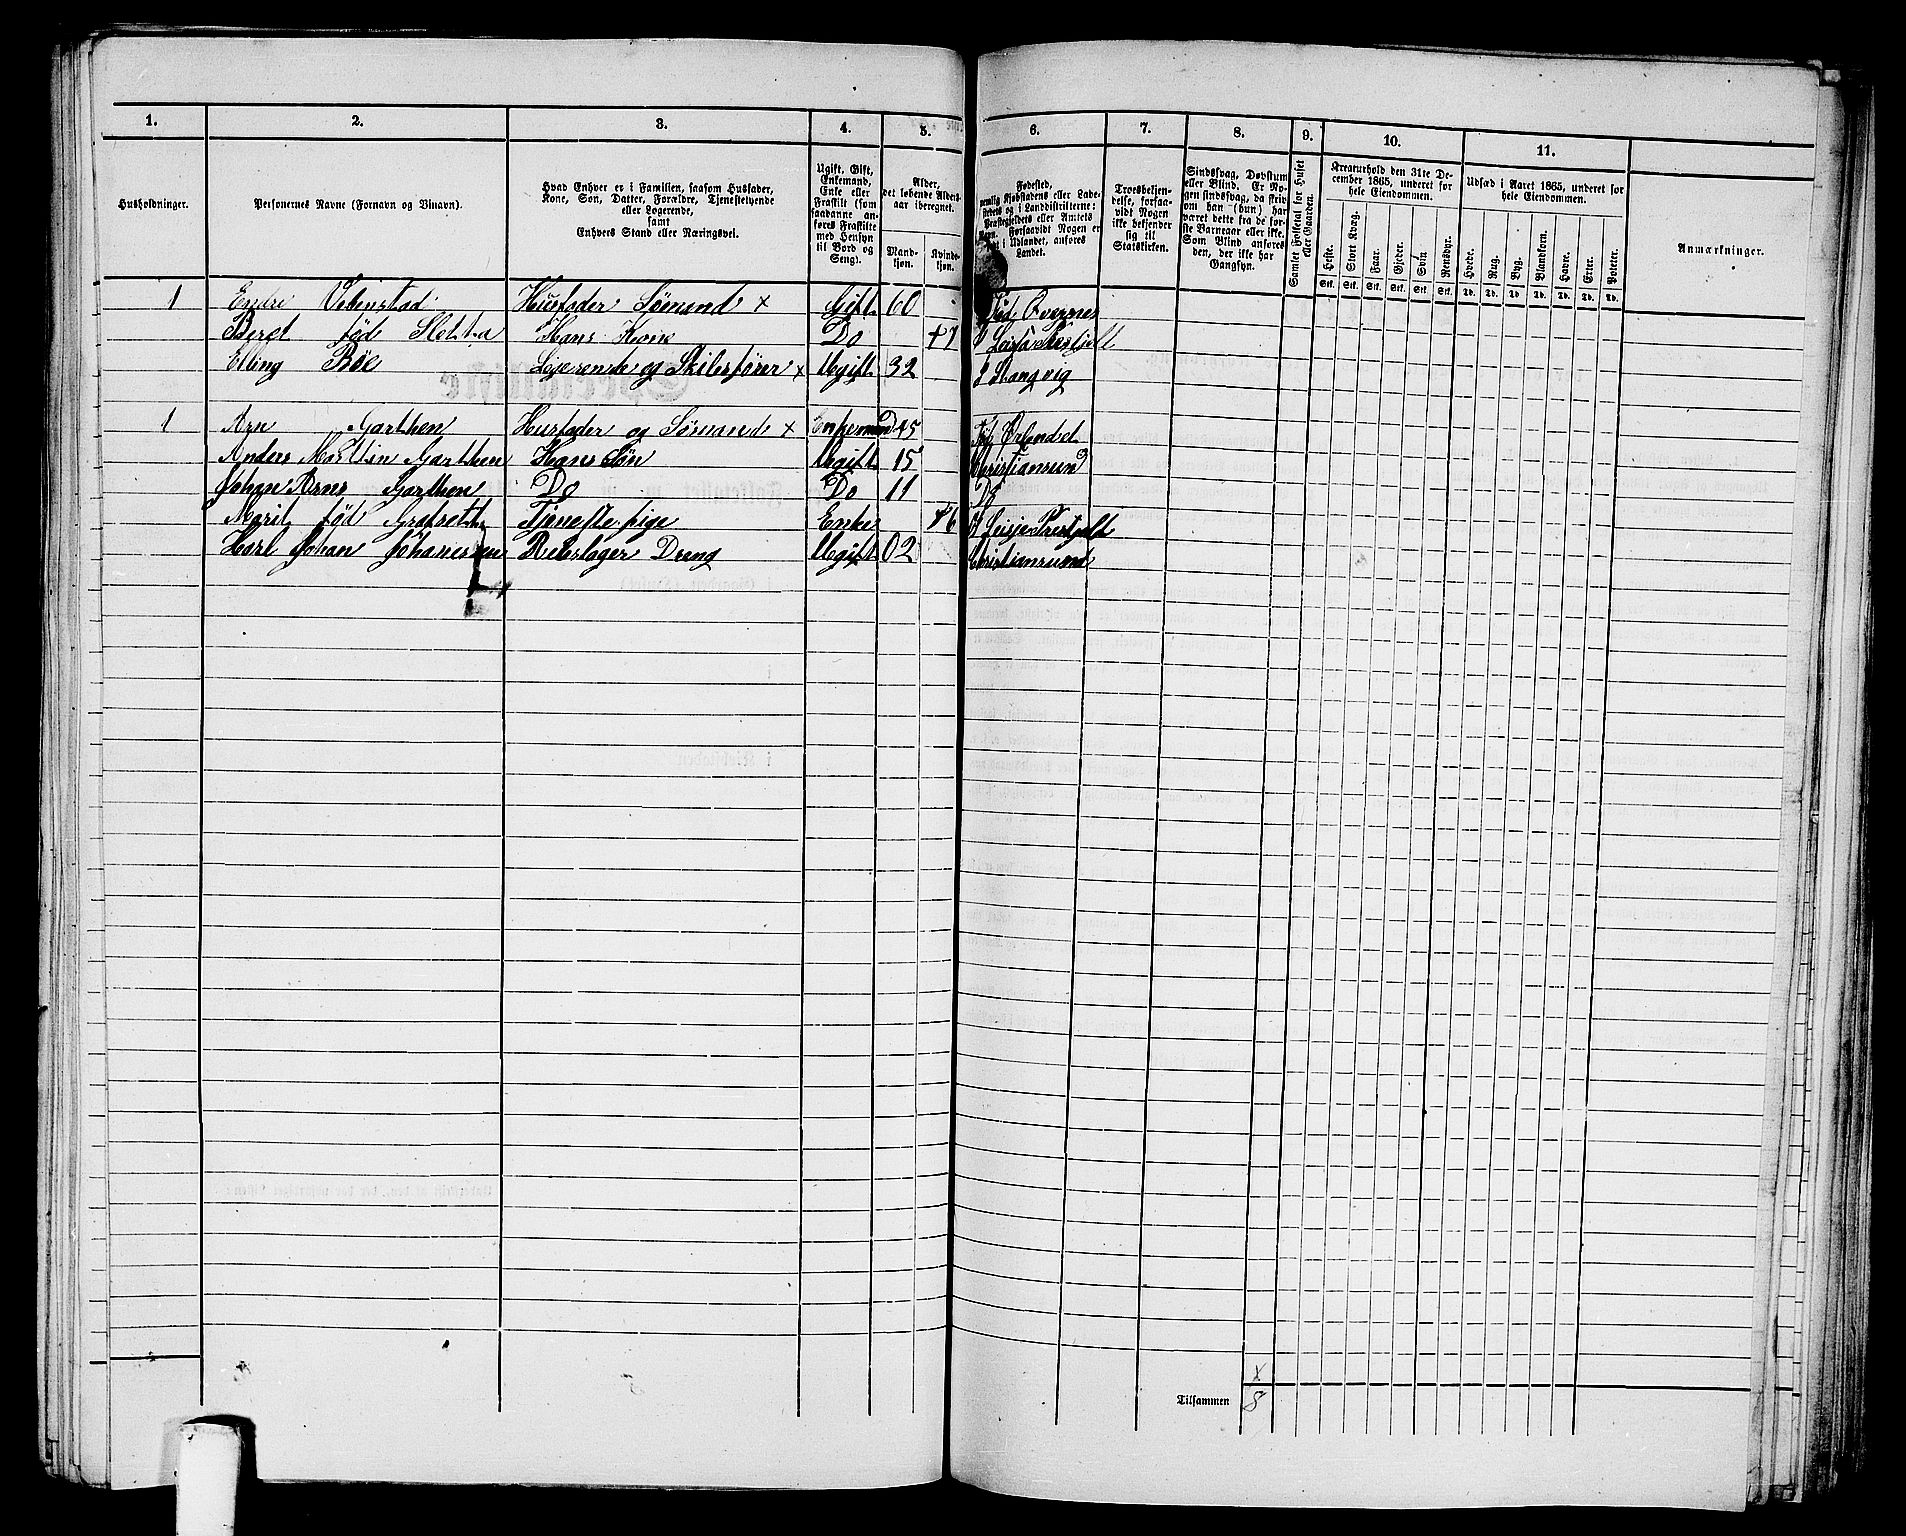 1. 2. 3. 4. 5. 6. 7. 8. 9. 10. 11.
Husholdninger.
Personernes Navne (Fornavn og Binavn).
Hvad Enhver er i Familien, saasom Husfader,
Kone, Søn, Datter, Forældre, Tjenestetyende
eller Logerende,
samt
Enhvers Stand eller Næringsvei.
Ugift, Gift,
Enkemand,
Enke eller
Fraskilt (som
saadanne an-
føres Fraskilte
med Hensyn
til Bord og
Seng).
Alder,
det løbende Alders-
aar iberegnet.
Mand-
kjøn.
Kvinde-
kjøn.
Fødested,
nemlig Kjøbstadens eller Lade-
stedets og i Landdistrikterne:
Præstegjeldets eller Amtets
Navn. Forsaavidt Nogen er
født i Udlandet, anføres
Landet.
Troesbekjen-
delse, forsaa-
vidt Nogen
ikke bekjender
sig til
Statskirken.
Sindssvag, Døvstum
eller Blind. Er No-
gen sindssvag, da skriv
om han (hun) har
været dette fra de før-
ste Barneaar eller ikke.
Som Blind anføres
den, der ikke har
Gangsyn.
Samlet Folketal for Huset
eller Gaarden.
Kreaturhold den 31te De-
cember 1865, underet for
hele Eiendommen.
Heste. Stort Kvæg. Faar. Gjeder. Svin Rensdyr.
Stk. Stk. Stk. Stk. Stk. Stk.
Udsæd i Aaret 1865, underet for
hele Eiendommen.
Hvede. Rug. Byg. Blandkorn. Havre. Erter. Poteter.
Td. Td. Td. Td. Td. Td. Td.
Anmærkninger.
1 Endre Husfader Sømand x Gift 60 Fød
Beret fød Sletta Hans Kone Do 47
Elling Bøe Logerende og x Ugift 32 Stangvig
1 Arn Garthen Husfader og Sømand x Enkemand 45 Ørlandet
Anders Martin Garthen Hans Søn Ugift 15 Christiansund
Johan Arns Garthen Do Do 11 Do
Marit fød Tjeneste pige Enke 46
Karl Johan Johannesen Rebslager Dreng Ugift 02 Christiansund
x
Tilsammen 8